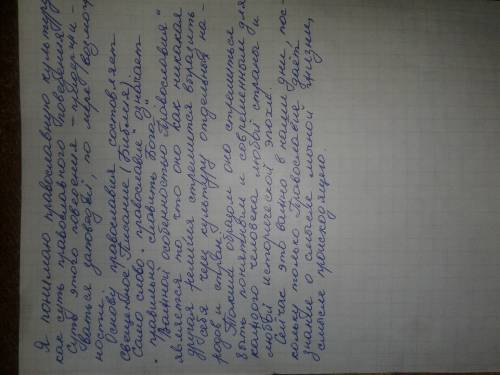 Я понимаю православную культуру
как суть православного поведения.
Суть этого поведения – придержи-
ваться заповедей, по мере возмож-
ности.
Основу православия составляет
свещенное Писание (Библия).
Само слово „православие" означает
„правильно славить Бога".
Важной особенностью Православия
является то, что оно как никакая
другая религия стремится выразить
себя через культуру отдельных на-
родов и стран.
Таким образом оно стремиться
быть понятным и современным для
каждого человека любой страны и
любой исторической эпохи.
Сейчас это важно в наши дни, пос-
кольку только Православие даёт
знание о смысле личной жизни,
смысле происходящего.